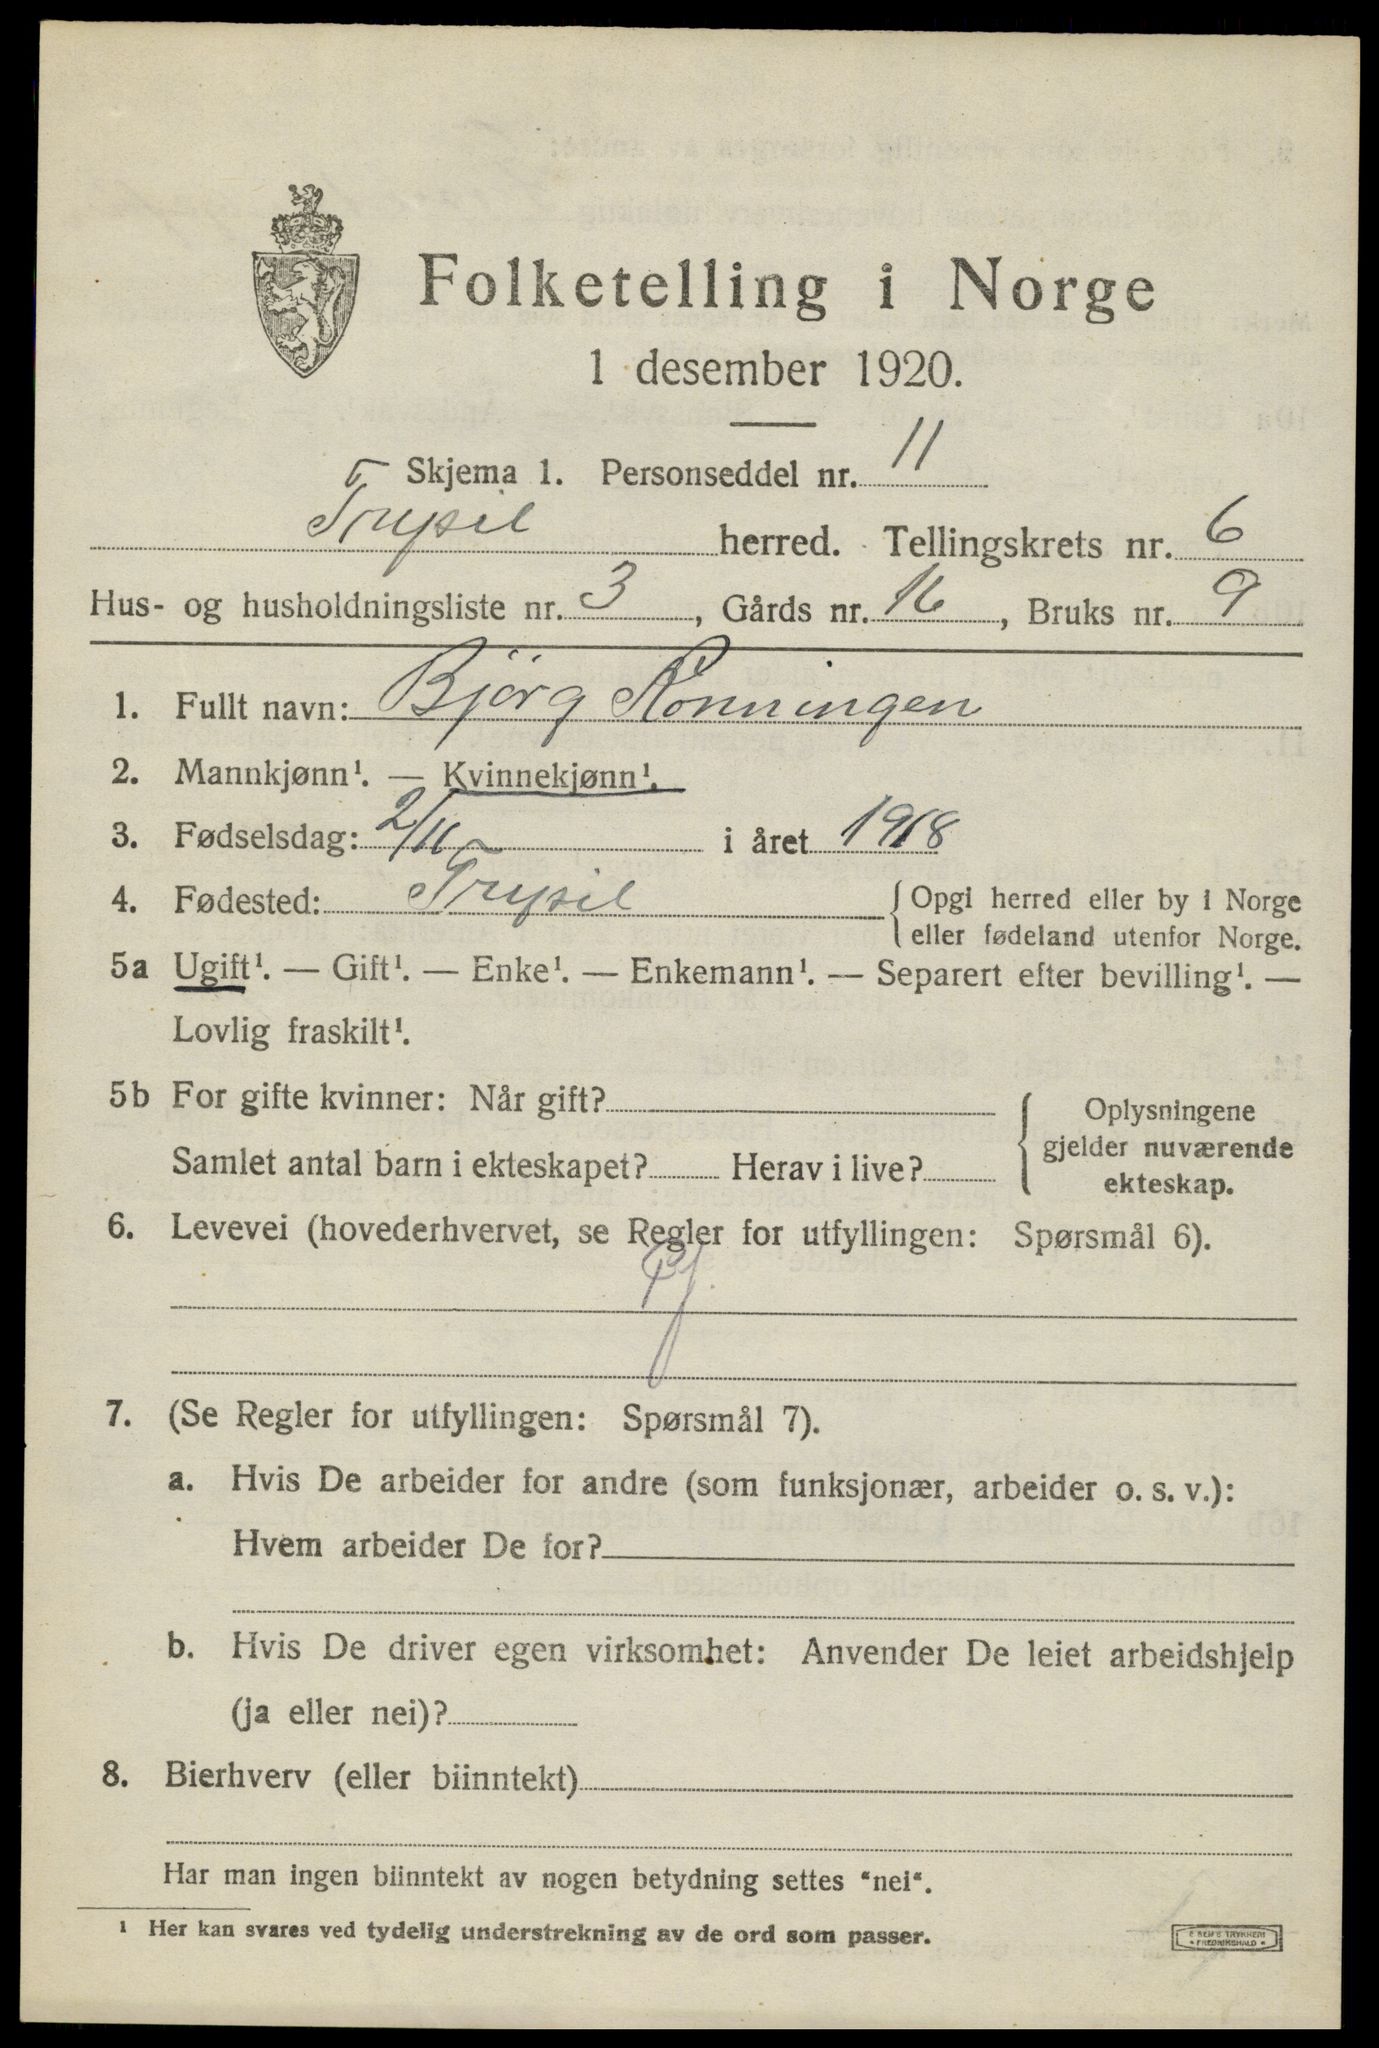 Folketelling i Norge
1 desember 1920.
Skjema 1. Personseddel nr. 11
Trysil herred. Tellingskrets nr. 6
Hus- og husholdningsliste nr. 3, Gårds nr. 16, Bruks nr. 9
1. Fullt navn: Björg Rönningen
2. Mannkjønn¹. — Kvinnekjønn¹.
3. Fødselsdag: 2/11 i året 1918
4. Fødested: Trysil { Opgi herred eller by i Norge
eller fødeland utenfor Norge.
5a Ugift¹. — Gift¹. — Enke¹. — Enkemann¹. — Separert efter bevilling¹. —
Lovlig fraskilt¹.
5b For gifte kvinner: Når gift?
Samlet antal barn i ekteskapet? Herav i live?
Oplysningene
gjelder nuværende
ekteskap.
6. Levevei (hovederhvervet, se Regler for utfyllingen: Spørsmål 6).
7. (Se Regler for utfyllingen: Spørsmål 7).
a. Hvis De arbeider for andre (som funksjonær, arbeider o. s. v.):
Hvem arbeider De for?
b. Hvis De driver egen virksomhet: Anvender De leiet arbeidshjelp
(ja eller nei)?
8. Bierhverv (eller biinntekt)
Har man ingen biinntekt av nogen betydning settes "nei".
¹ Her kan svares ved tydelig understrekning av de ord som passer.
E SEM'S TRYKKERI
• FREDRIKSHALD •